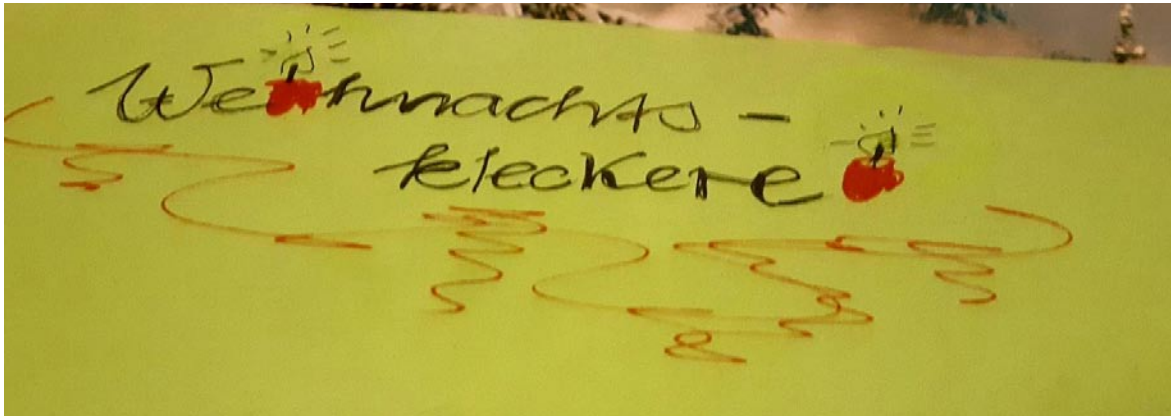 Weihnachts-
kleckerei